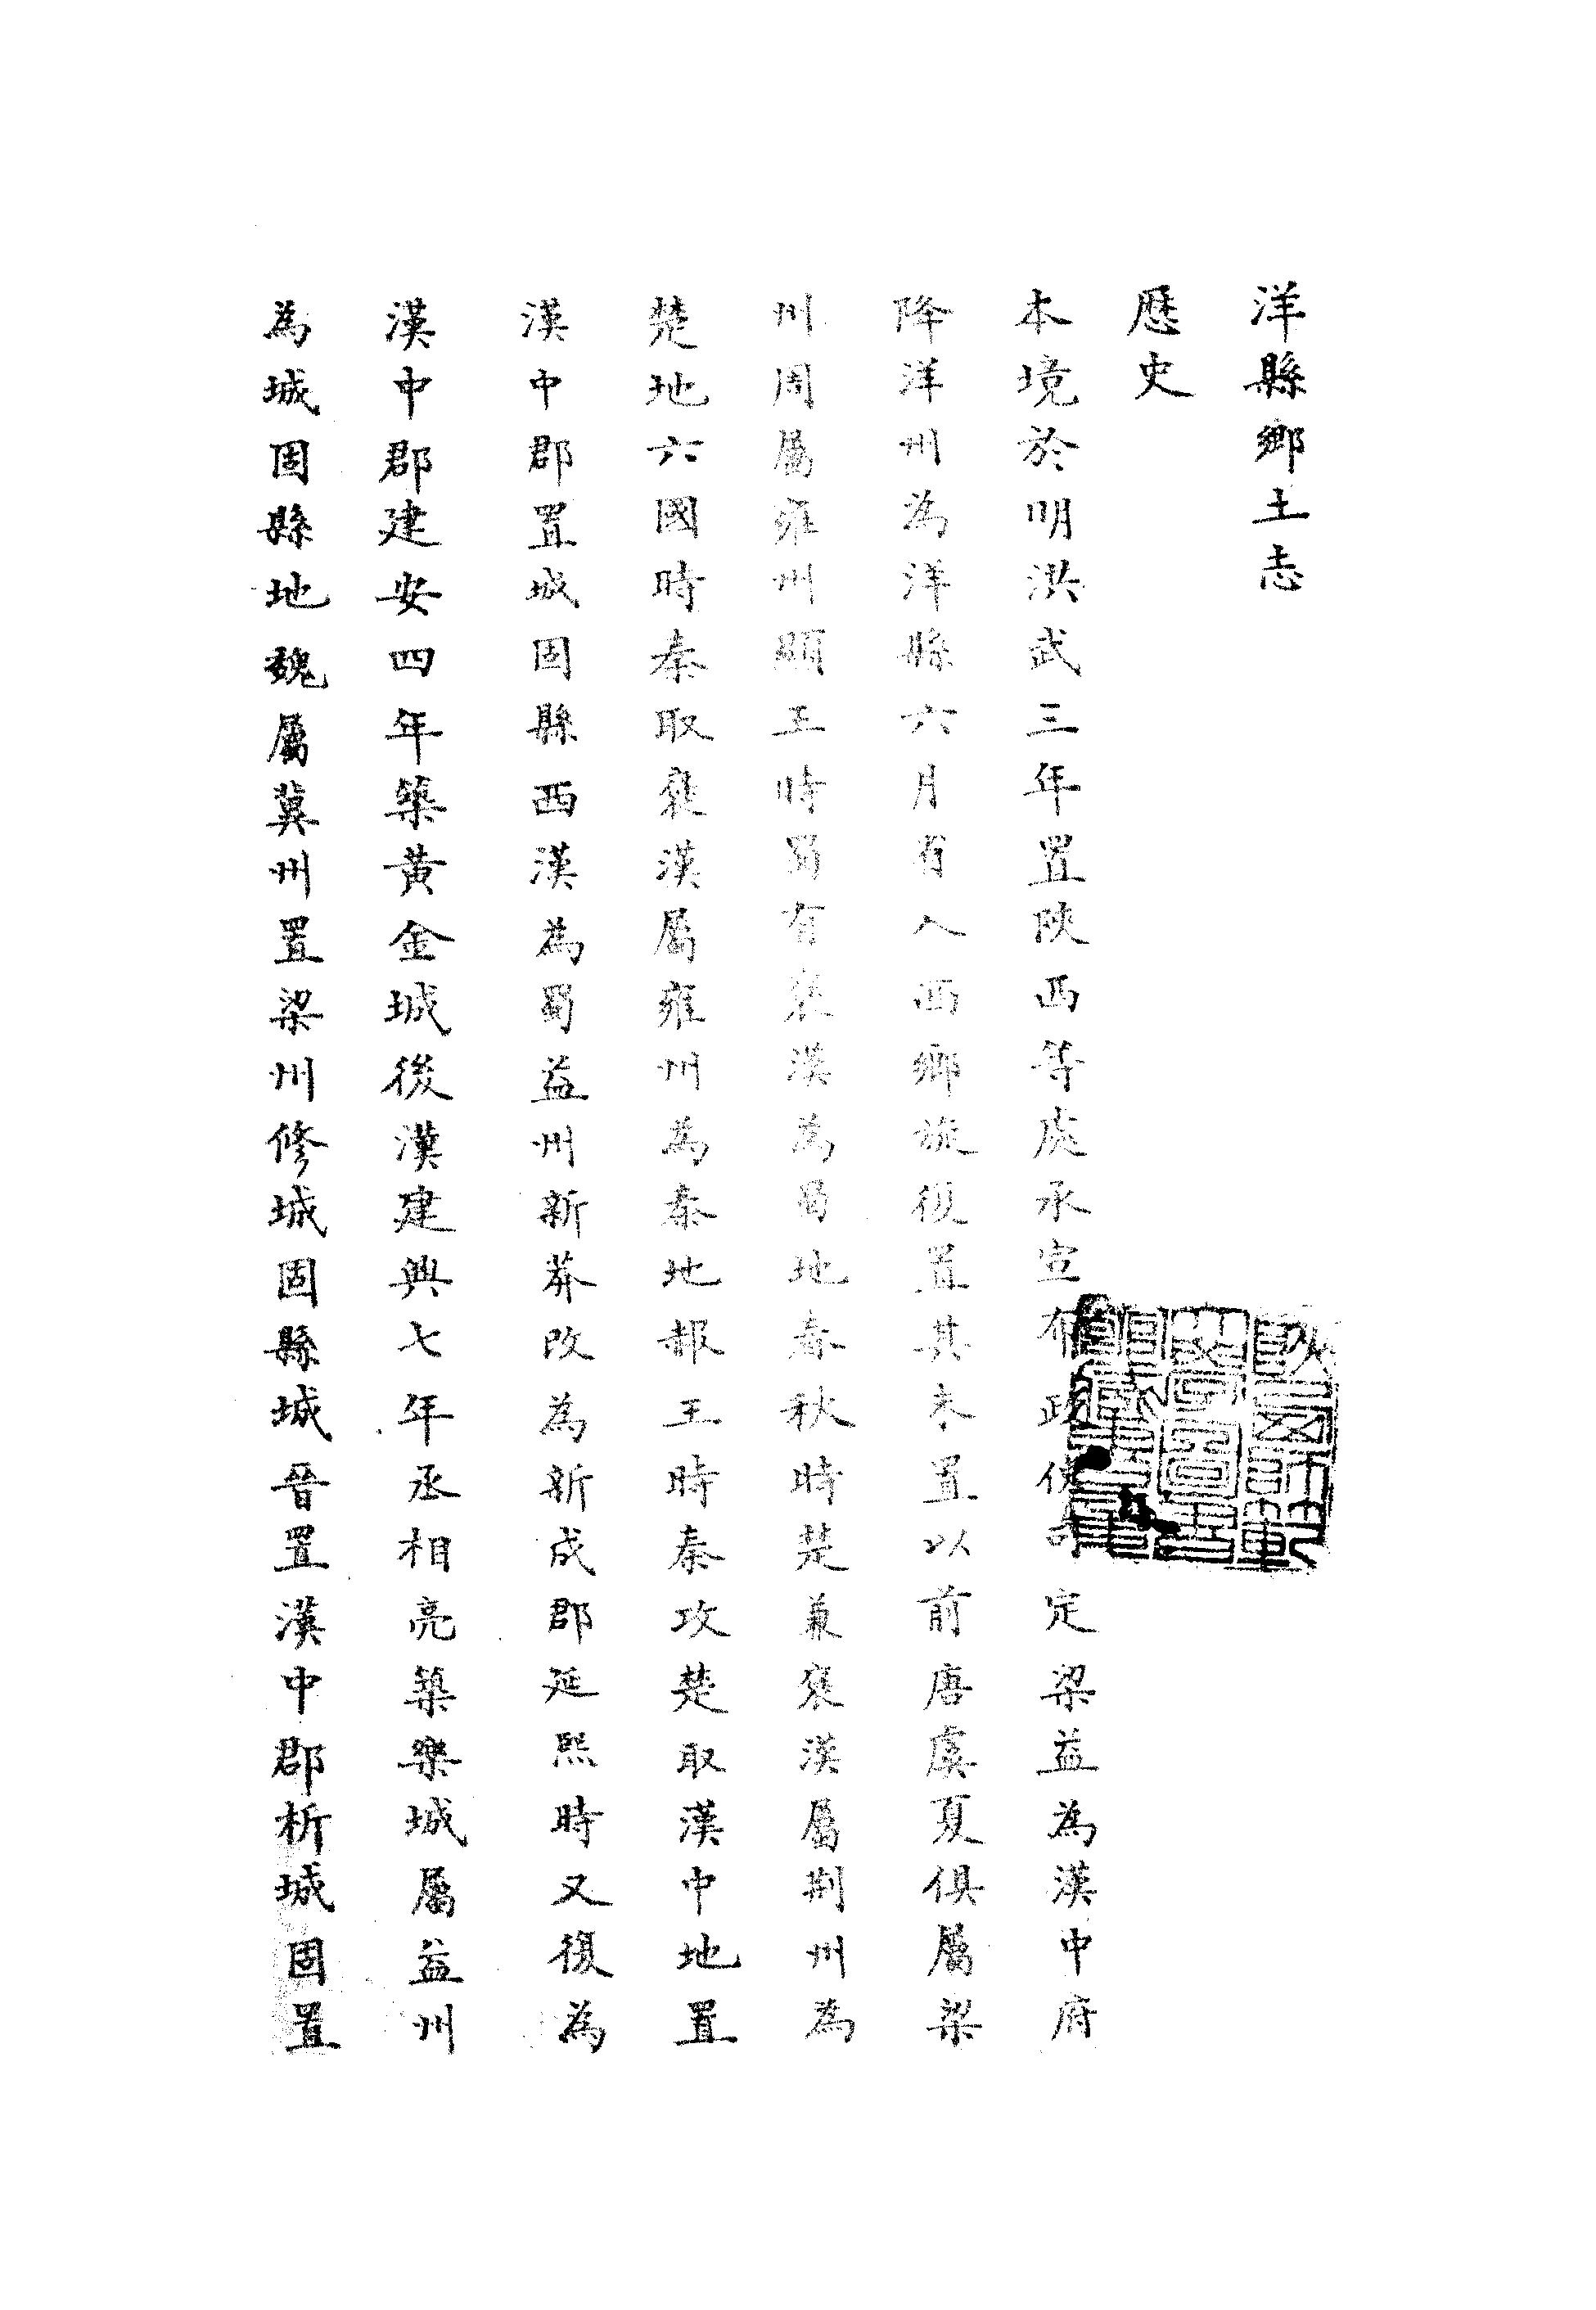 洋縣鄉土志
歷史
本境於明洪武三年置陝西等處承宣布政使司定梁益為漢中府
降洋州為洋縣六月省入西鄉旋復置其未置以前唐虞夏俱屬梁
州周屬雍州顯王時蜀有褒漢為蜀地春秋時楚兼褒漢屬荆州為
楚地六國時秦取褒漢屬雍州為秦地赧王時秦攻楚取漢中地置
漢中郡置城固縣西漢為蜀益州新莽改為新成郡延熙時又復為
漢中郡建安四年築黃金城後漢建興七年丞相亮築樂城屬益州
為城固縣地魏屬冀州置梁州修城固縣城晉置漢中郡析城固置